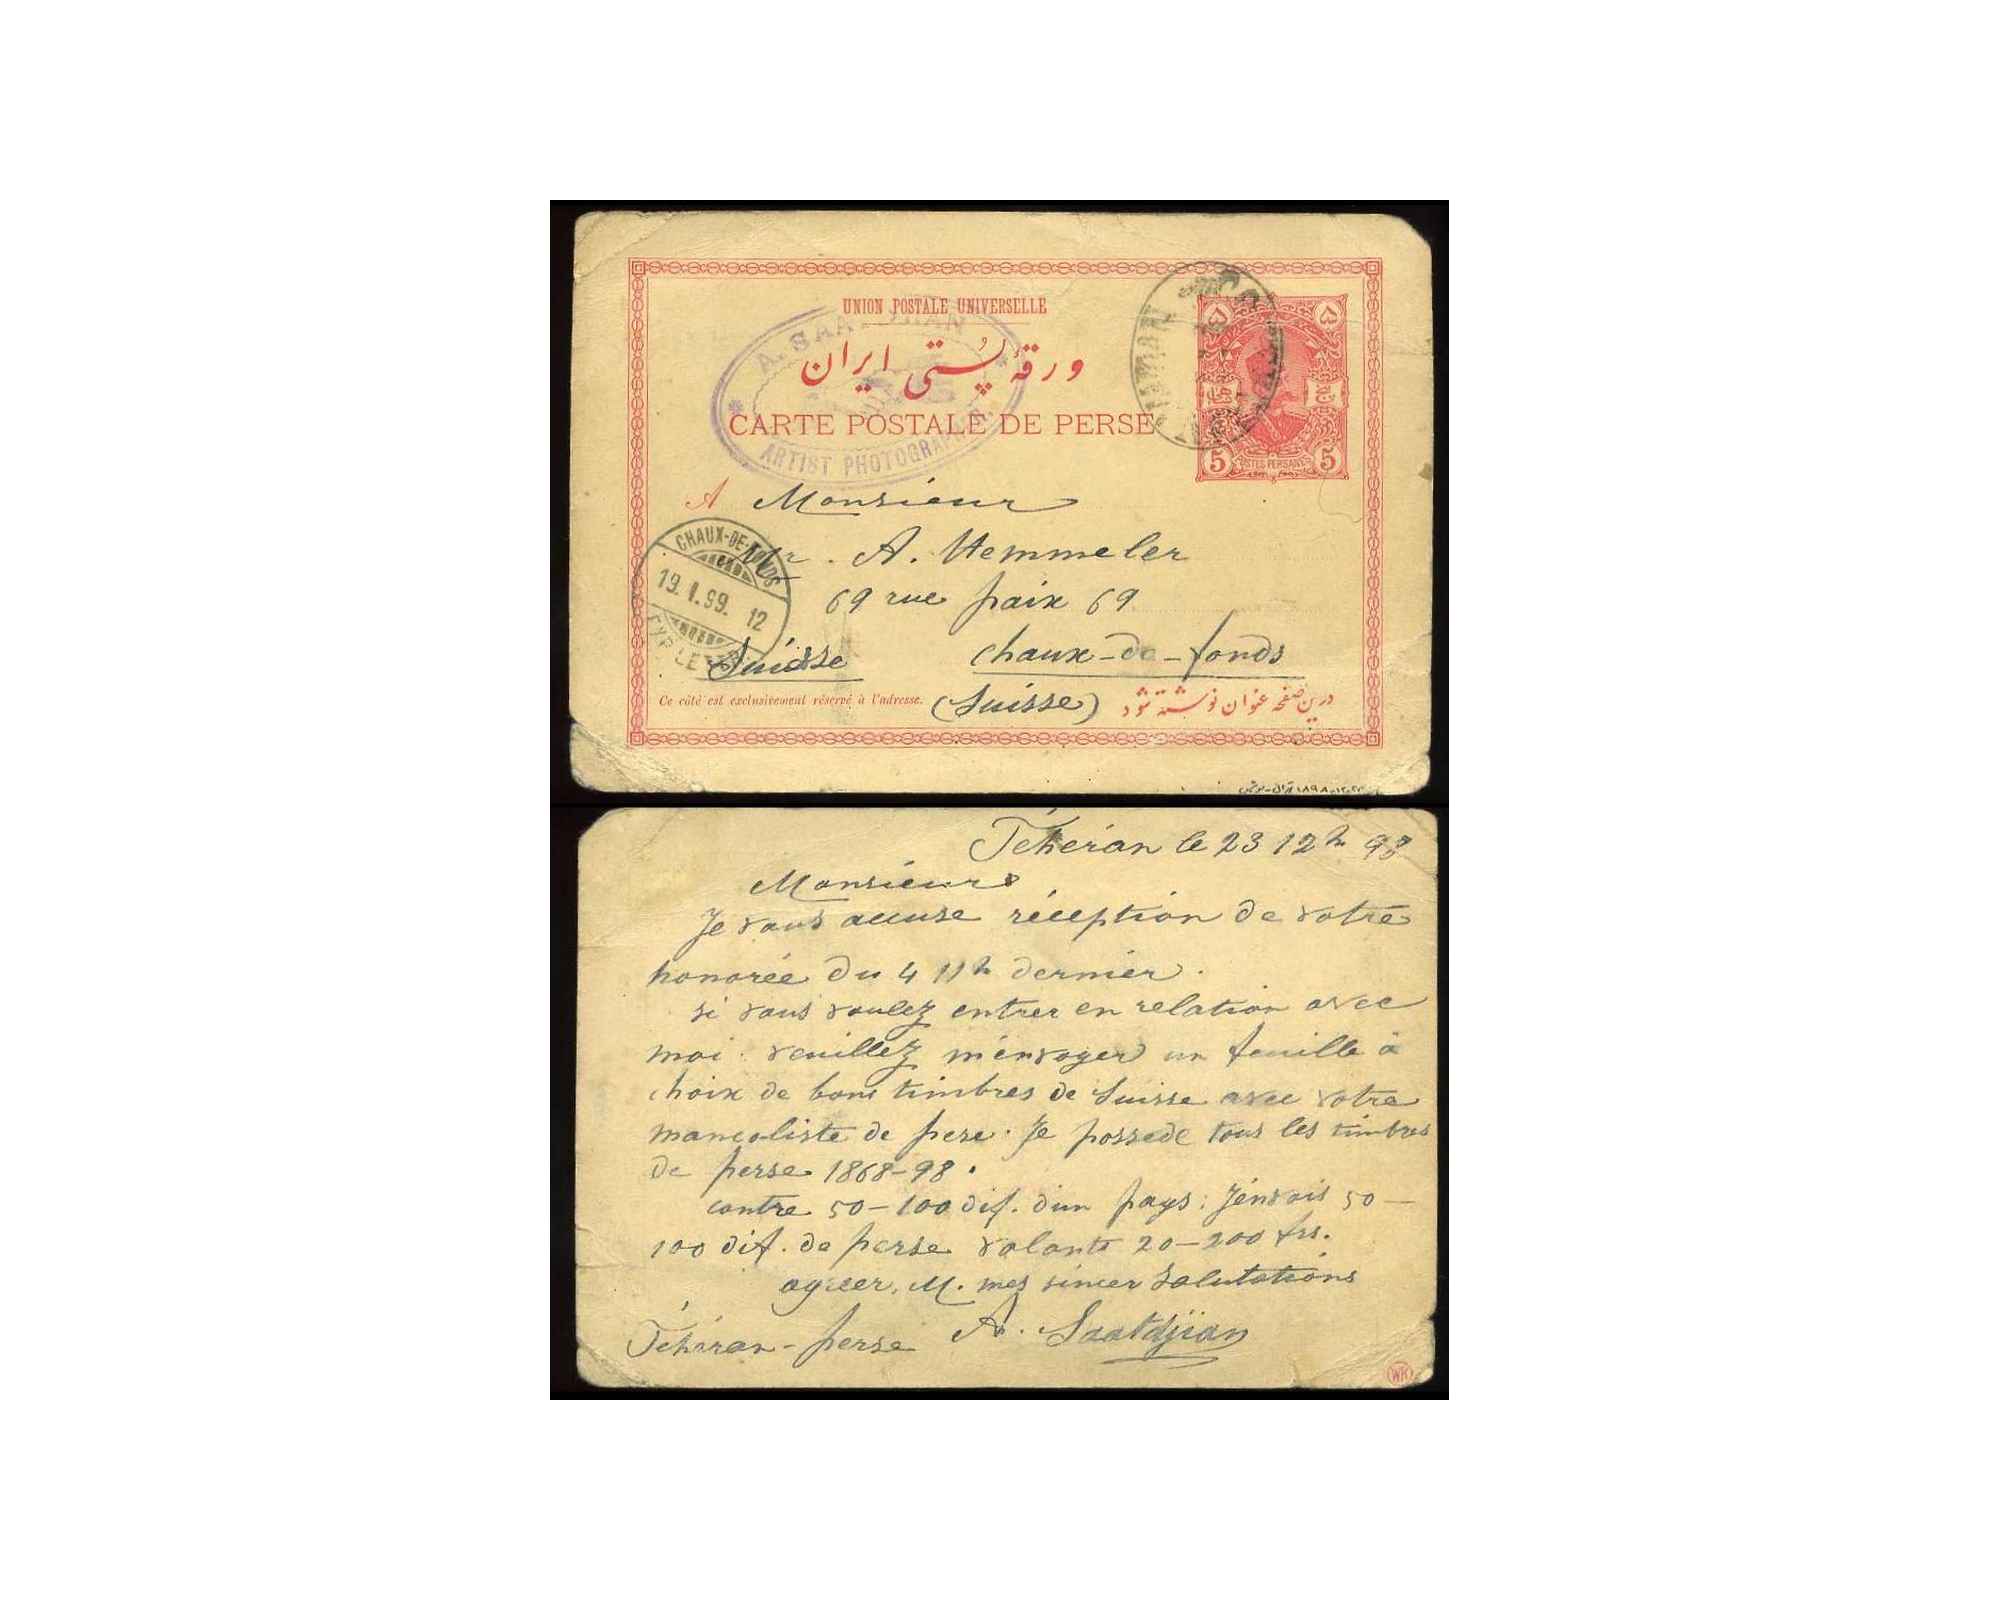 UNION POSTALE UNIVERSELLE
ورقهٔ پُستی ایران
CARTE POSTALE DE PERSE
ARTIST PHOTOGRAPHER
5 POSTES PERSANES 5
A Monsieur
Mr. A. Hemmeler
69 rue paix 69
Suisse chaux-de-fonds
(Suisse)
CHAUX-DE-FONDS
19.I.99. 12
EXP. LETT
Ce côté est exclusivement réservé à l'adresse.
درین صفحه عنوان نوشته شود
Téhéran le 23 12h 98
Monsieur
Je vous accuse réception de votre
honorée du 4 11h dernier.
si vous voulez entrer en relation avec
moi. veuillez m'envoyer un feuille à
choix de bons timbres de Suisse avec votre
mancoliste de perse. Je possede tous les timbres
de perse 1868-98.
contre 50-100 dif. d'un pays. J'envois 50-
100 dif. de perse valants 20-200 frs.
agreer, M. mes sincer salutations
Téhéran-perse A. Saatdjian
WK